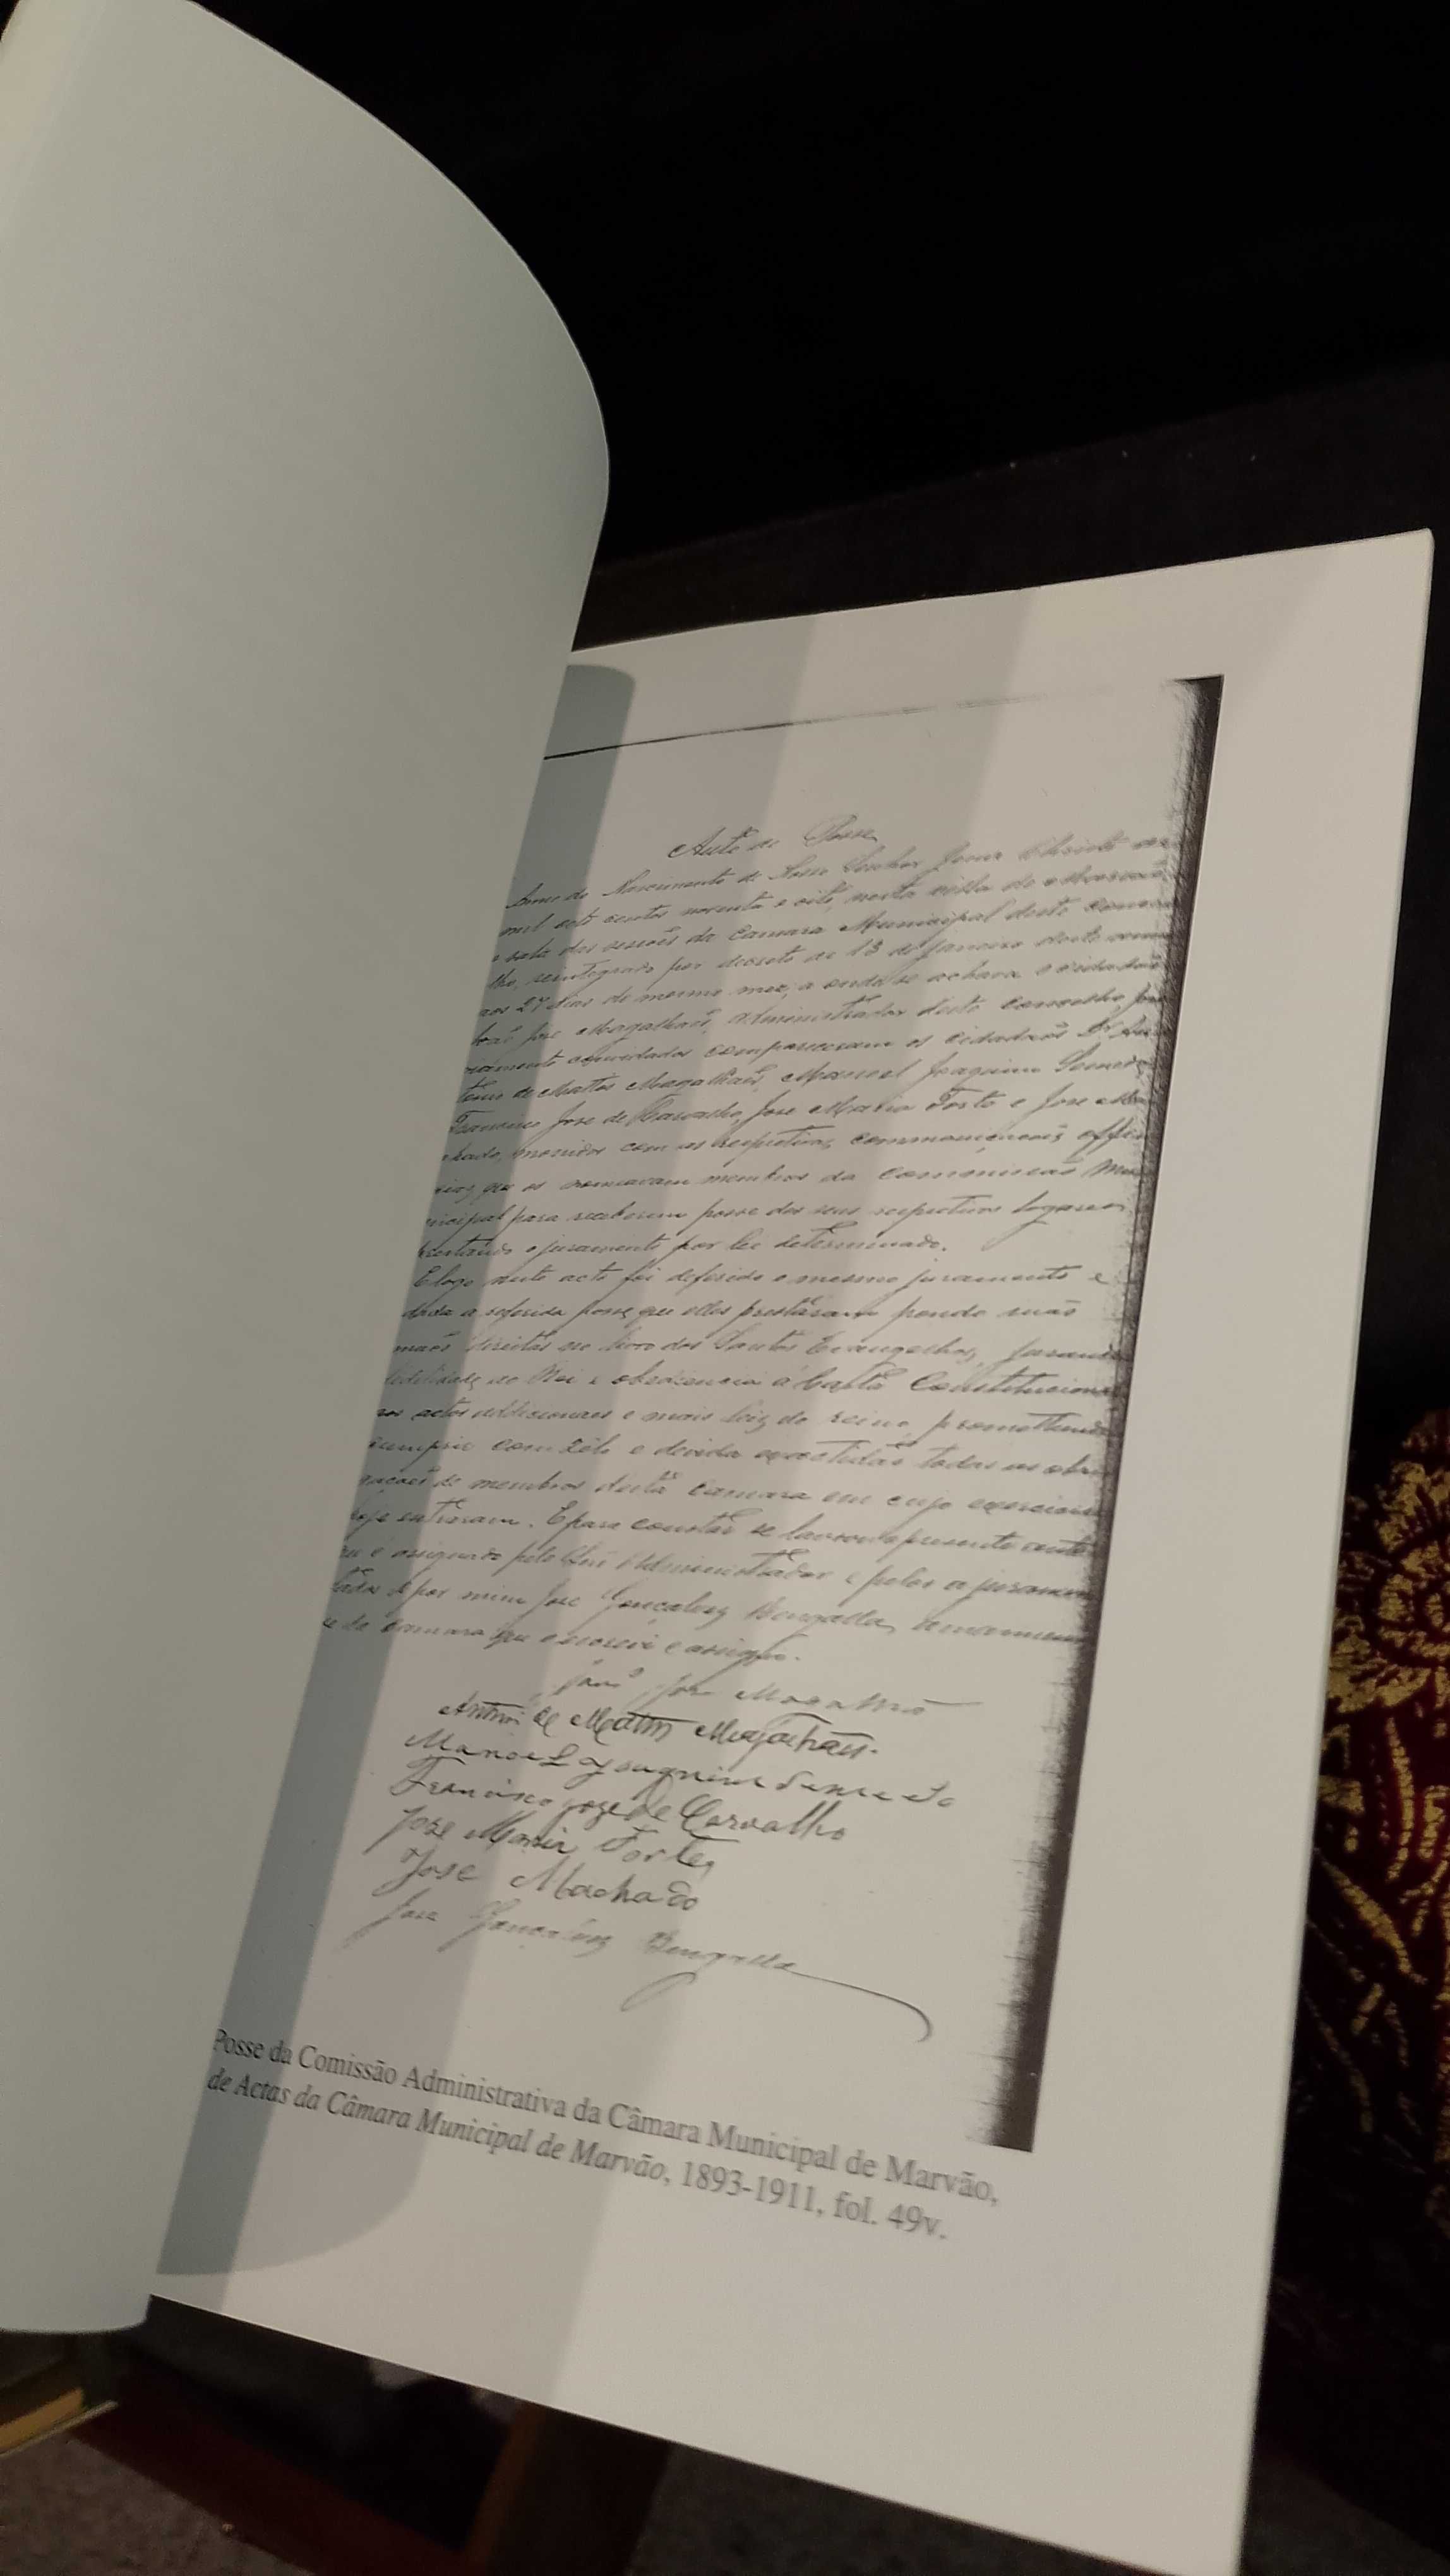 Auto de Posse
Anno do Nascimento de Nosso Senhor Jesus Christo de
mil oito centos noventa e oito, nesta villa de Marvão,
e sala das sessões da Camara Municipal deste conce
lho, reintegrado por decreto de 13 de Janeiro deste anno
aos 27 dias do mesmo mez, a onde se achava o cidadão
José Magalhães, administrador deste concelho, pre
viamente convidados compareceram os cidadãos Dr. An
tonio de Mattos Magalhães, Manoel Joaquim
Francisco José de Carvalho, José Maria Forte e José Ma
chado, munidos com as respectivas communicações offi
ciaes, que os nomeavam membros da commissão Mu
nicipal para receberem posse dos seus respectivos logares
prestando o juramento por lei determinado.
E logo neste acto foi deferido o mesmo juramento e
dada a referida posse, que elles prestaram pondo suas
mãos direitas no livro dos Santos Evangelhos, jurando
fidelidade ao Rei e obediencia á Carta Constitucional
aos actos addicionaes e mais leis do reino, promettendo
cumprir com zelo e devida exactidão todas as obri
gações de membros desta camara em cujo exercicio
hoje entraram. E para constar se lavrou o presente auto
e assignado pelo Administrador e pelos ajuramen
tados e por mim José Gonçalves Bengalla,
da camara que o escrevi e assigno.
João José Magalhães
Antonio de Mattos Magalhães.
Manoel Joaquim
Francisco José de Carvalho
José Maria Forte
José Machado
José Gonçalves Bengalla
Posse da Comissão Administrativa da Câmara Municipal de Marvão,
de Actas da Câmara Municipal de Marvão, 1893-1911, fol. 49v.